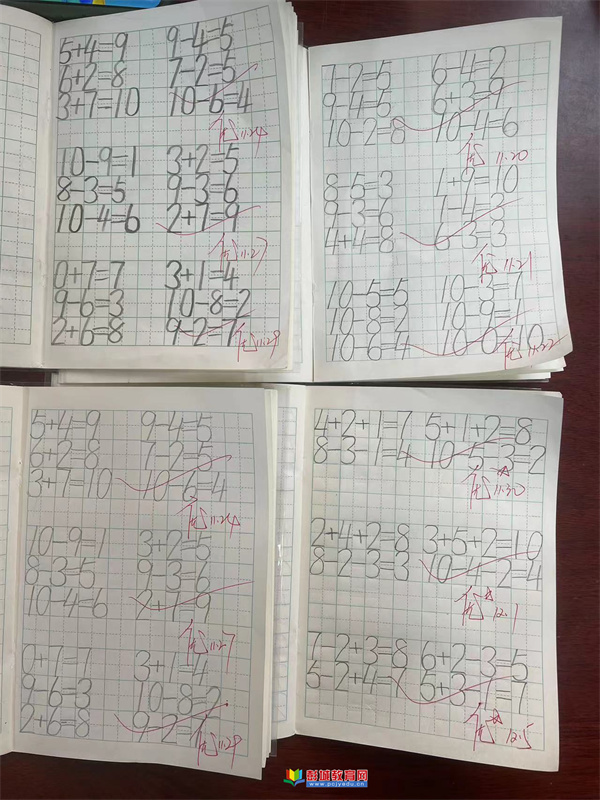 5+4=9 9-4=5
6+2=8 7-2=5
3+7=10 10-6=4
优 11.24
10-9=1 3+2=5
8-3=5 9-3=6
10-4=6 2+7=9
优 11.27
0+7=7 3+1=4
9-6=3 10-8=2
2+6=8 9-2=7
优 11.29
7-2=5 6-4=2
9-4=5 6+3=9
10-2=8 10-4=6
优 11.20
8-5=3 1+9=10
9-3=6 7-4=3
4+4=8 6-3=3
优 11.21
10-5=5 10-3=7
10-8=2 10-9=1
10-6=4 10-0=10
优 11.22
5+4=9 9-4=5
6+2=8 7-2=5
3+7=10 10-6=4
优 11.24
10-9=1 3+2=5
8-3=5 9-3=6
10-4=6 2+7=9
优 11.27
0+7=7 3+1=4
9-6=3 10-8=2
2+6=8 9-2=7
优 11.29
4+2+1=7 5+1+2=8
8-3-1=4 10-5-3=2
优 11.30
2+4+2=8 3+5+2=10
8-2-3=3 10-4-2=4
优 12.1
7-2+3=8 6+2-3=5
-2+4= 6+3= 7
优 12.5
彭城教育网
www.pcjyedu.cn